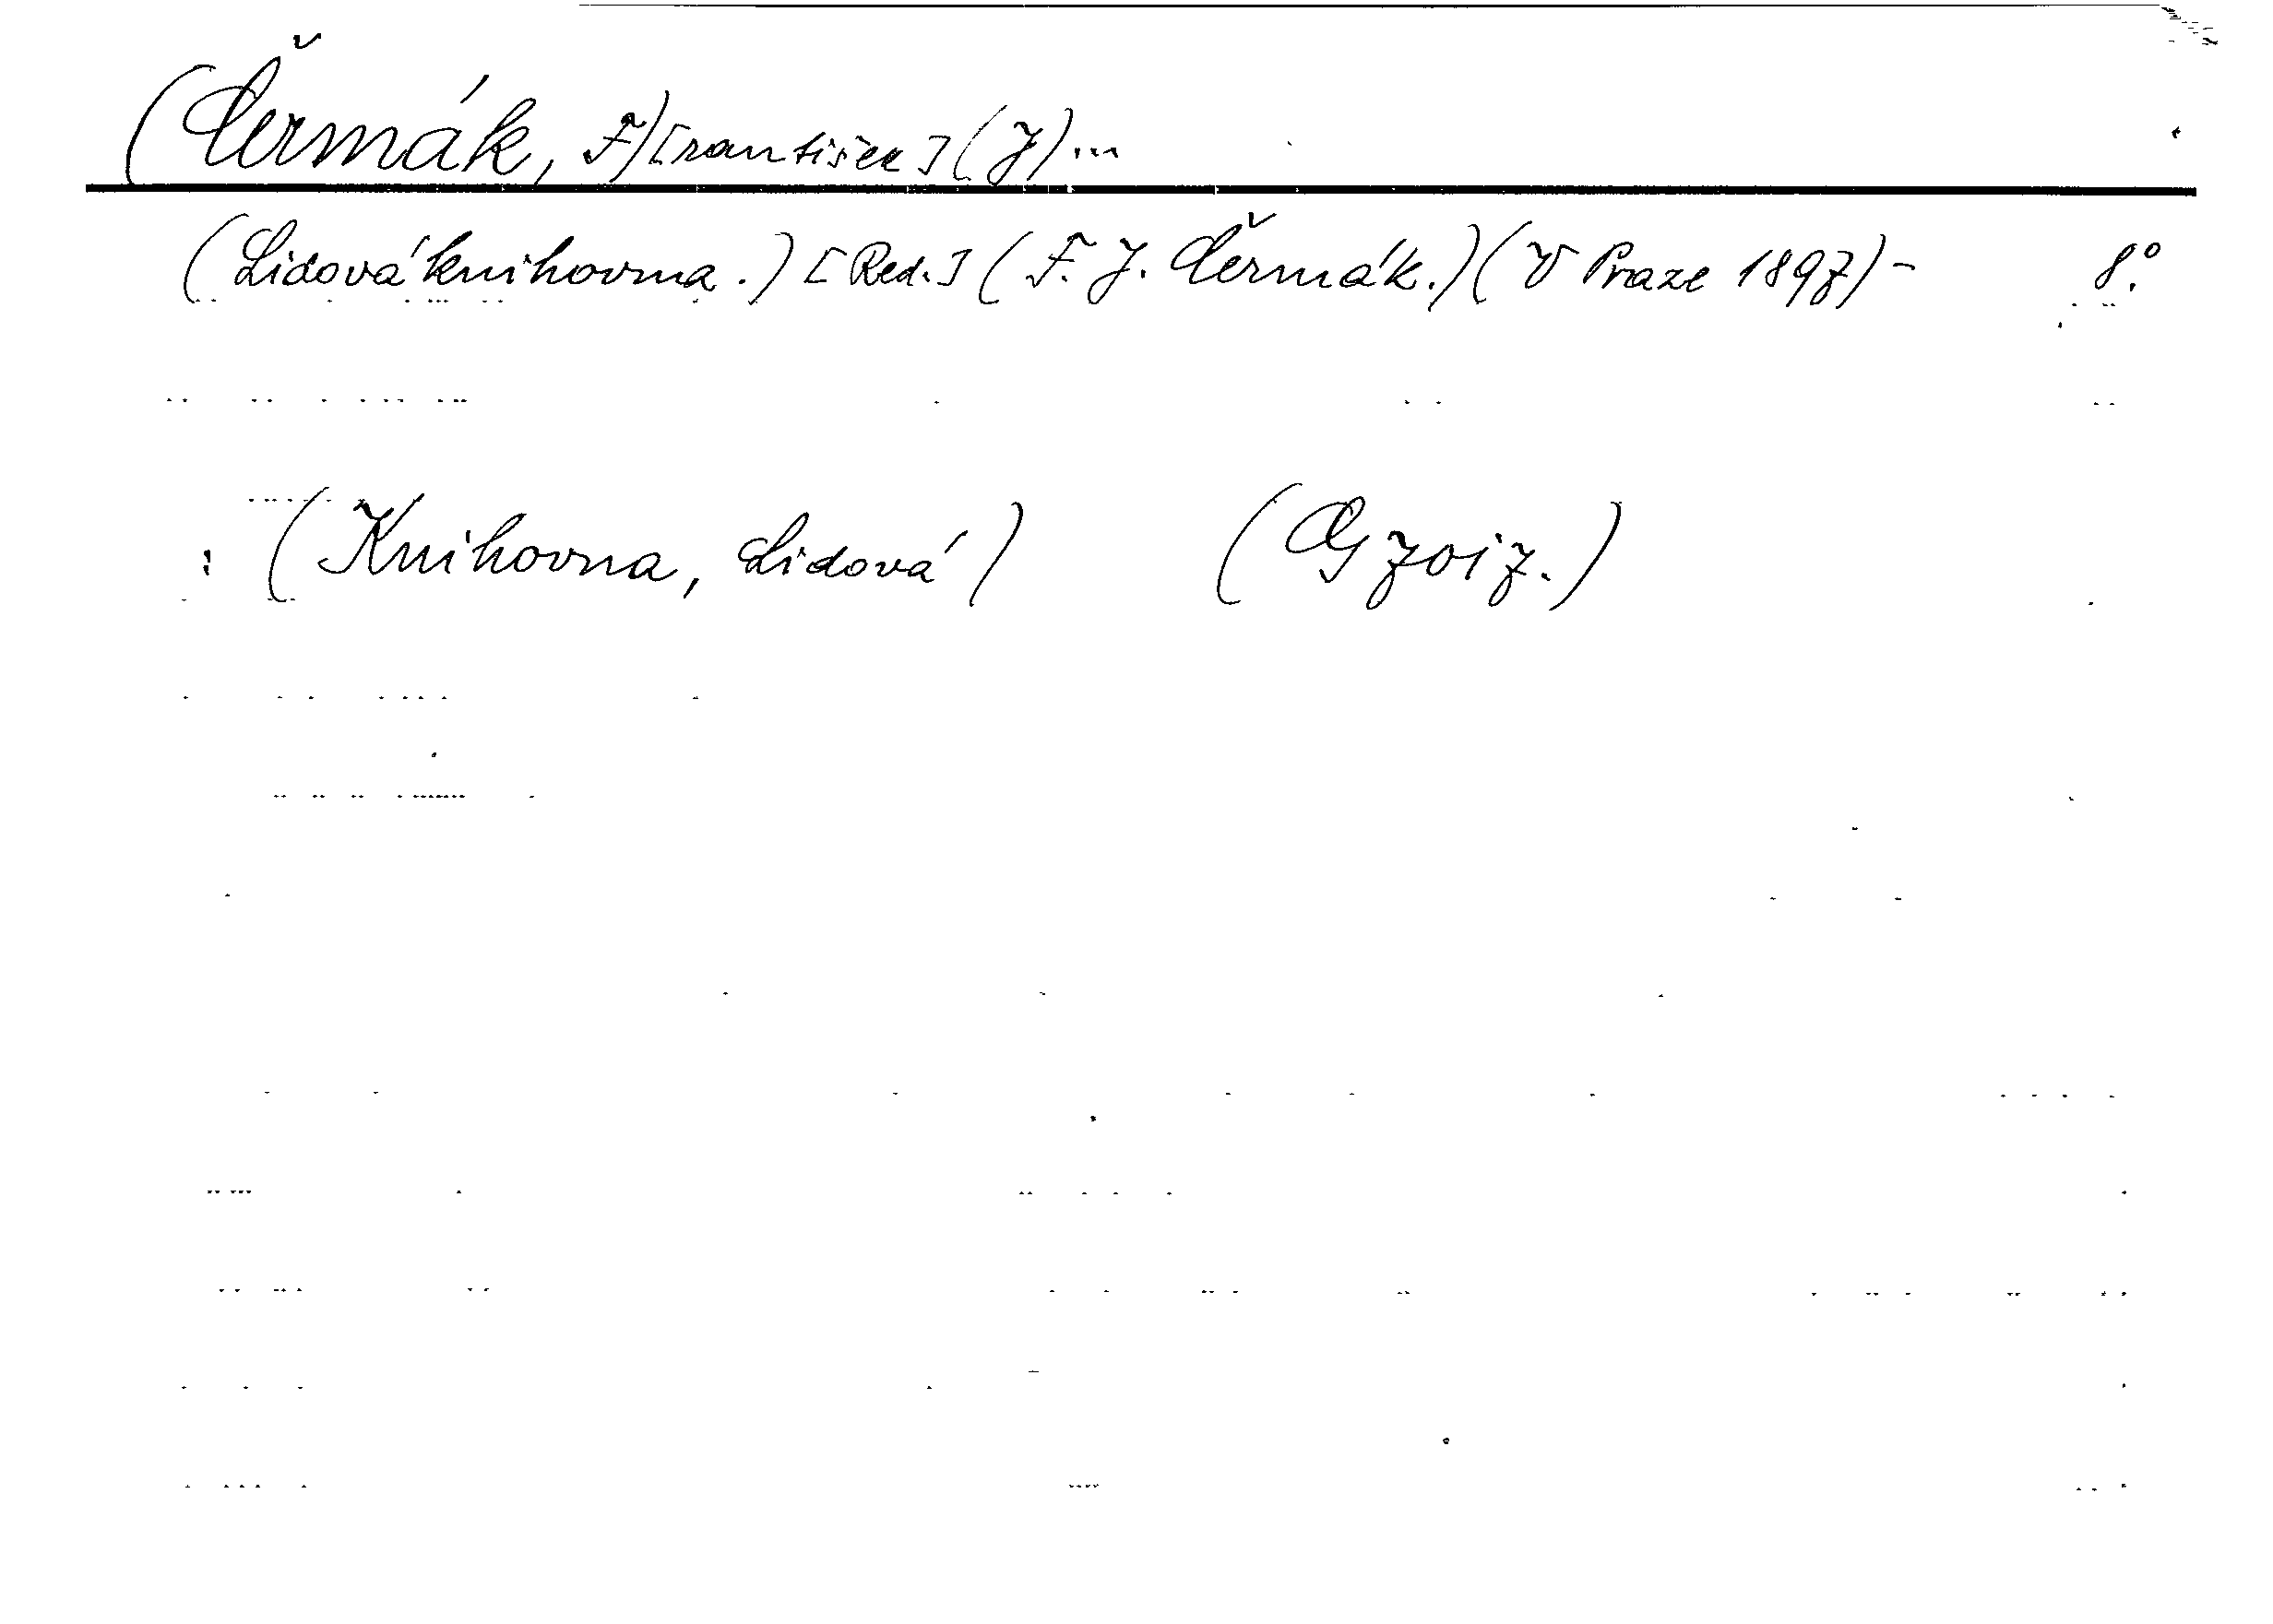 (Čermák, F)[rantišek](J)...
(Lidová knihovna.)[Red.](F. J. Čermák.)(V Praze 1897)- 8°.
: (Knihovna, Lidová) (